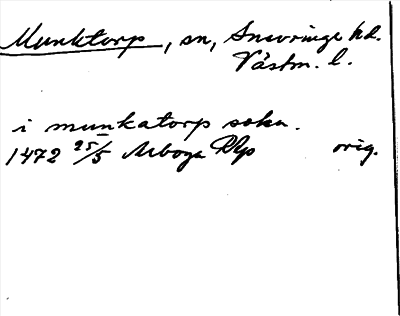 Munktorp, sn, Snevringe hd.
Västm. l.
i munkatorp sokn.
1472 25/5 Arboga RAp orig.